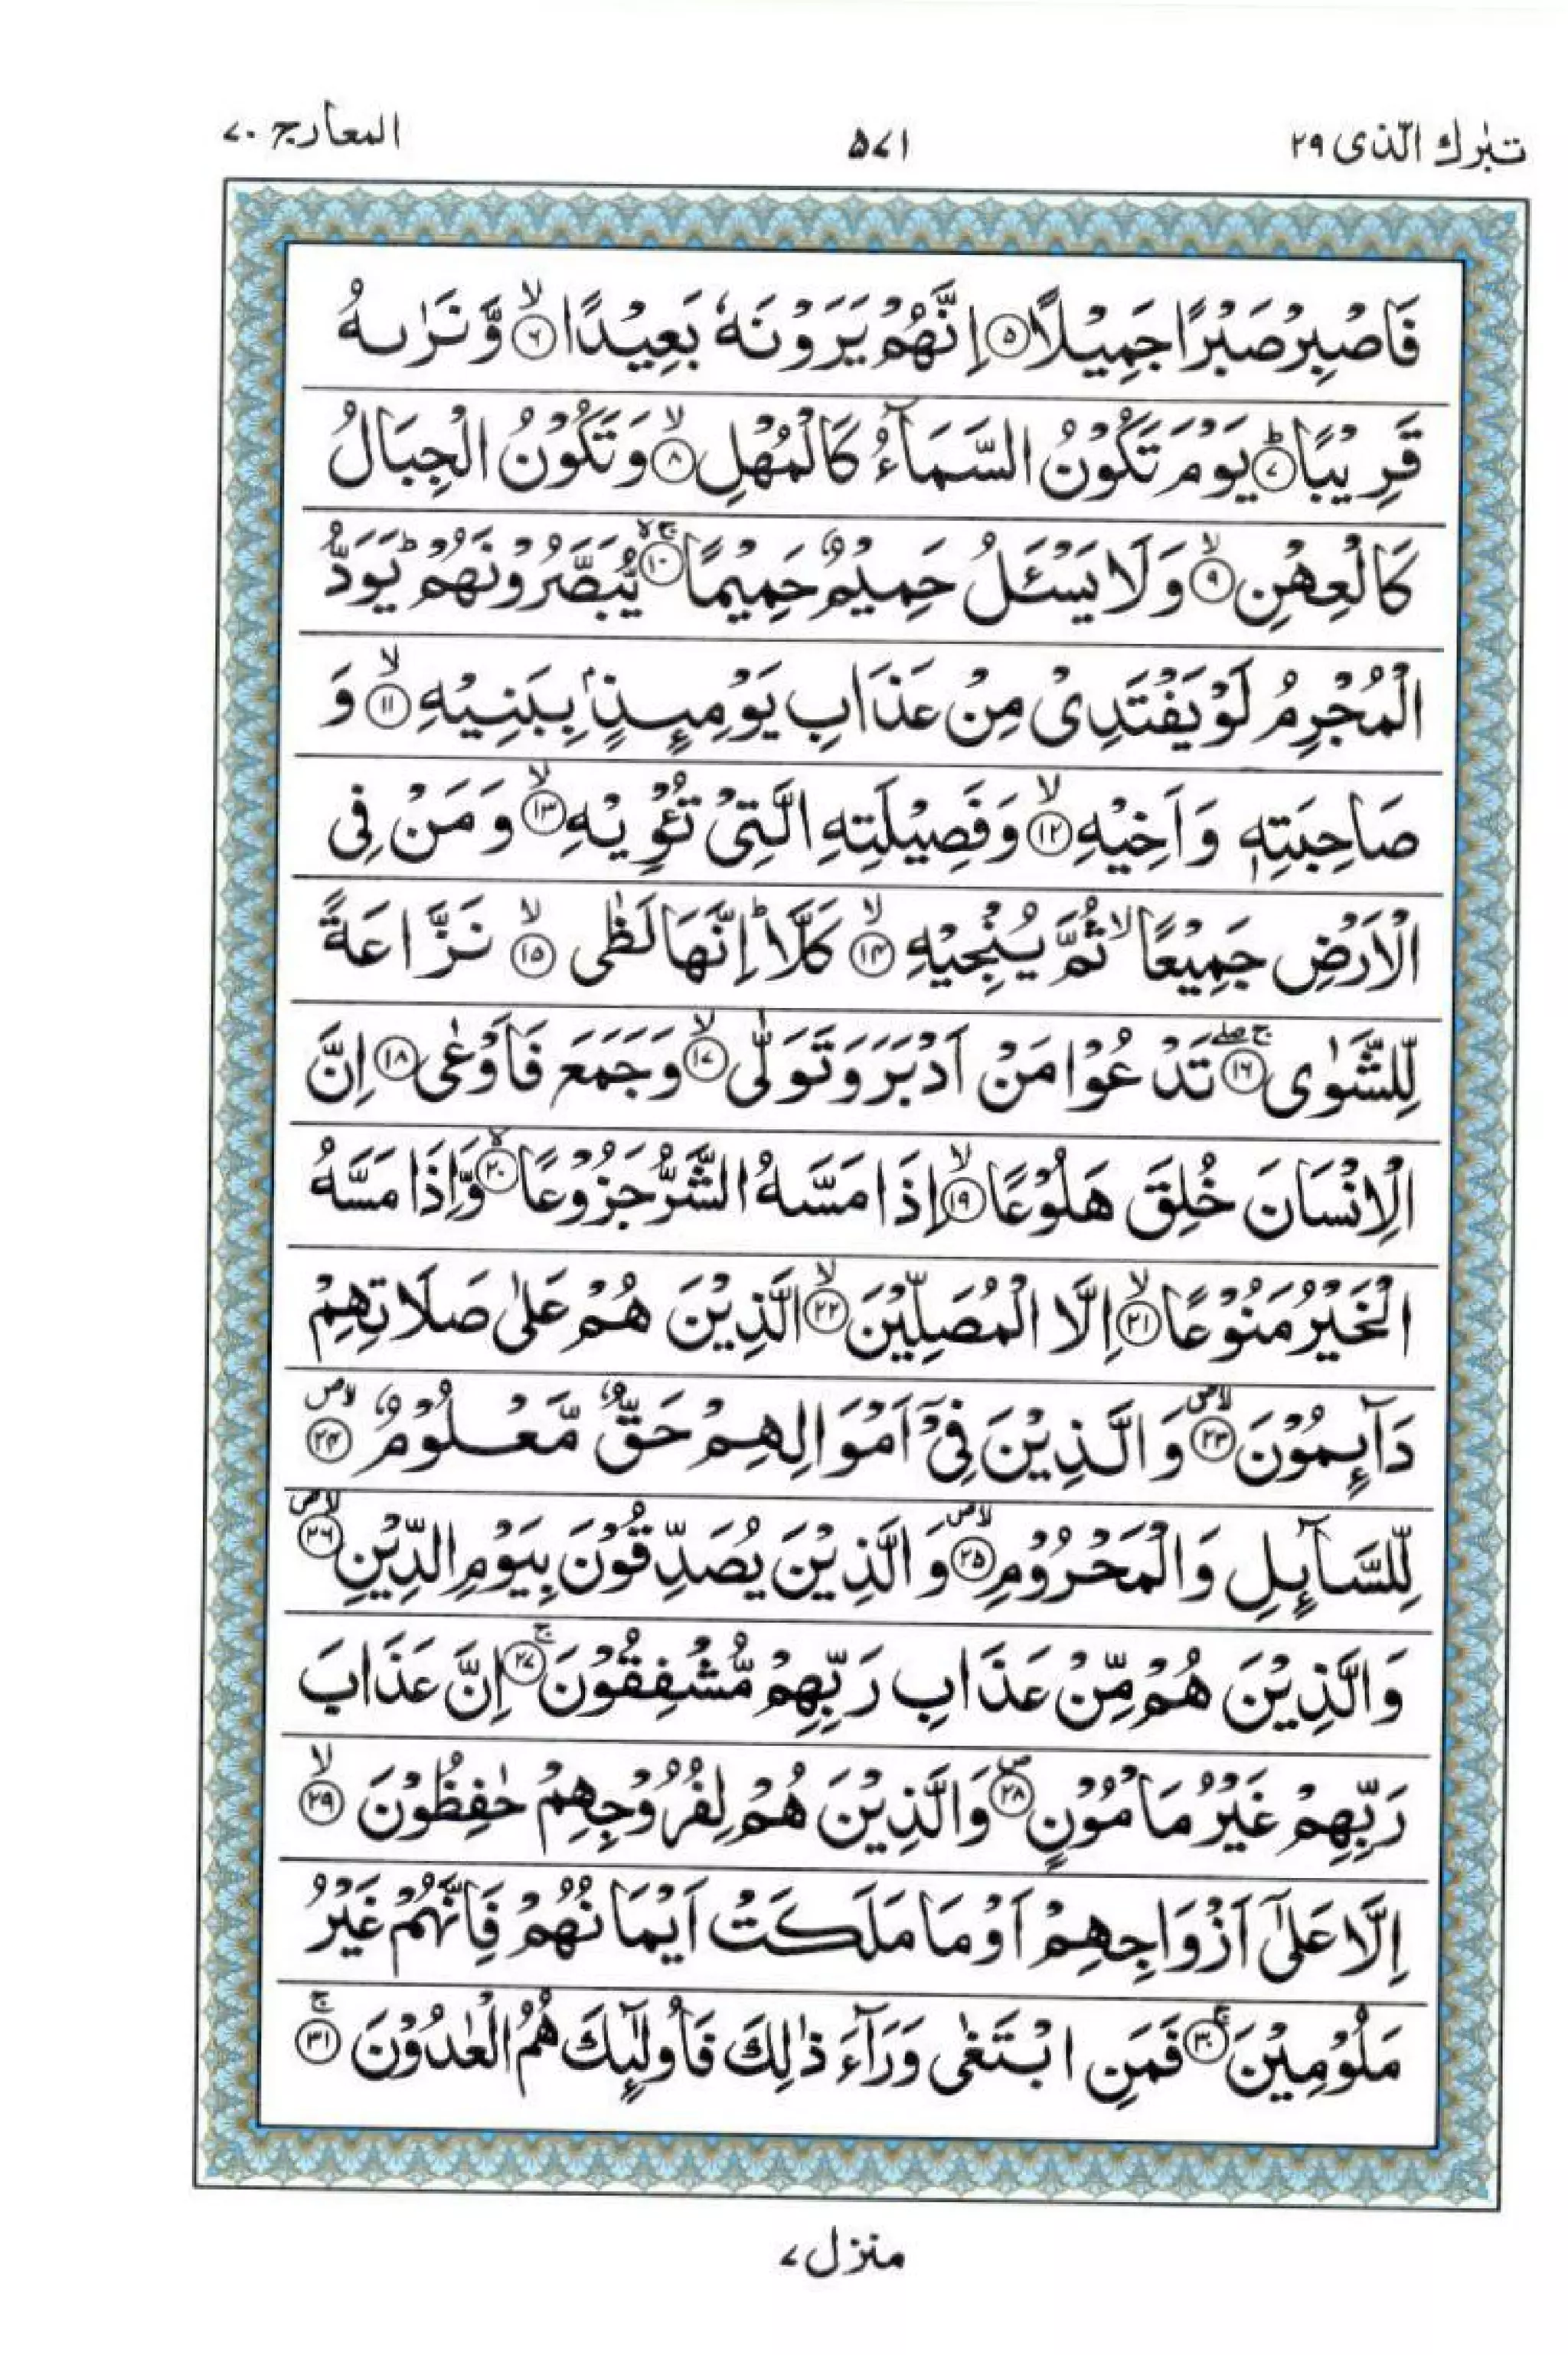 تبٰرك الّذی ۲۹ ۵۷۱ المعارج ۷۰
فَاصْبِرْ صَبْرًا جَمِيْلًا ۵ اِنَّهُمْ يَرَوْنَهٗ بَعِيْدًا ۶ۙ وَّ نَرٰىهُ
قَرِيْبًا ۷ؕ يَوْمَ تَكُوْنُ السَّمَآءُ كَالْمُهْلِ ۸ۙ وَ تَكُوْنُ الْجِبَالُ
كَالْعِهْنِ ۹ۙ وَ لَا يَسْـَٔلُ حَمِيْمٌ حَمِيْمًا ۱۰ۚۖ يُّبَصَّرُوْنَهُمْؕ يَوَدُّ
الْمُجْرِمُ لَوْ يَفْتَدِیْ مِنْ عَذَابِ يَوْمِىِٕذٍۭ بِبَنِيْهِ ۱۱ۙ وَ
صَاحِبَتِهٖ وَ اَخِيْهِ ۱۲ۙ وَ فَصِيْلَتِهِ الَّتِیْ تُـْٔوِيْهِ ۱۳ۙ وَ مَنْ فِی
الْاَرْضِ جَمِيْعًاۙ ثُمَّ يُنْجِيْهِ ۱۴ۙ كَلَّاؕ اِنَّهَا لَظٰی ۱۵ۙ نَزَّاعَةً
لِّلشَّوٰی ۱۶ۚۖ تَدْعُوْا مَنْ اَدْبَرَ وَ تَوَلّٰی ۱۷ۙ وَ جَمَعَ فَاَوْعٰی ۱۸ اِنَّ
الْاِنْسَانَ خُلِقَ هَلُوْعًا ۱۹ۙ اِذَا مَسَّهُ الشَّرُّ جَزُوْعًا ۲۰ۙ وَّ اِذَا مَسَّهُ
الْخَيْرُ مَنُوْعًا ۲۱ۙ اِلَّا الْمُصَلِّيْنَ ۲۲ۙ الَّذِيْنَ هُمْ عَلٰی صَلَاتِهِمْ
دَآىِٕمُوْنَ ۲۳۪ۙ وَ الَّذِيْنَ فِیْۤ اَمْوَالِهِمْ حَقٌّ مَّعْلُوْمٌ ۲۴۪ۙ
لِّلسَّآىِٕلِ وَ الْمَحْرُوْمِ ۲۵۪ۙ وَ الَّذِيْنَ يُصَدِّقُوْنَ بِيَوْمِ الدِّيْنِ ۲۶۪ۙ
وَ الَّذِيْنَ هُمْ مِّنْ عَذَابِ رَبِّهِمْ مُّشْفِقُوْنَ ۲۷ۚ اِنَّ عَذَابَ
رَبِّهِمْ غَيْرُ مَاْمُوْنٍ ۲۸۪ وَ الَّذِيْنَ هُمْ لِفُرُوْجِهِمْ حٰفِظُوْنَ ۲۹ۙ
اِلَّا عَلٰۤی اَزْوَاجِهِمْ اَوْ مَا مَلَكَتْ اَيْمَانُهُمْ فَاِنَّهُمْ غَيْرُ
مَلُوْمِيْنَ ۳۰ۚ فَمَنِ ابْتَغٰی وَرَآءَ ذٰلِكَ فَاُولٰٓىِٕكَ هُمُ الْعٰدُوْنَ ۳۱ۚ
منزل ۷